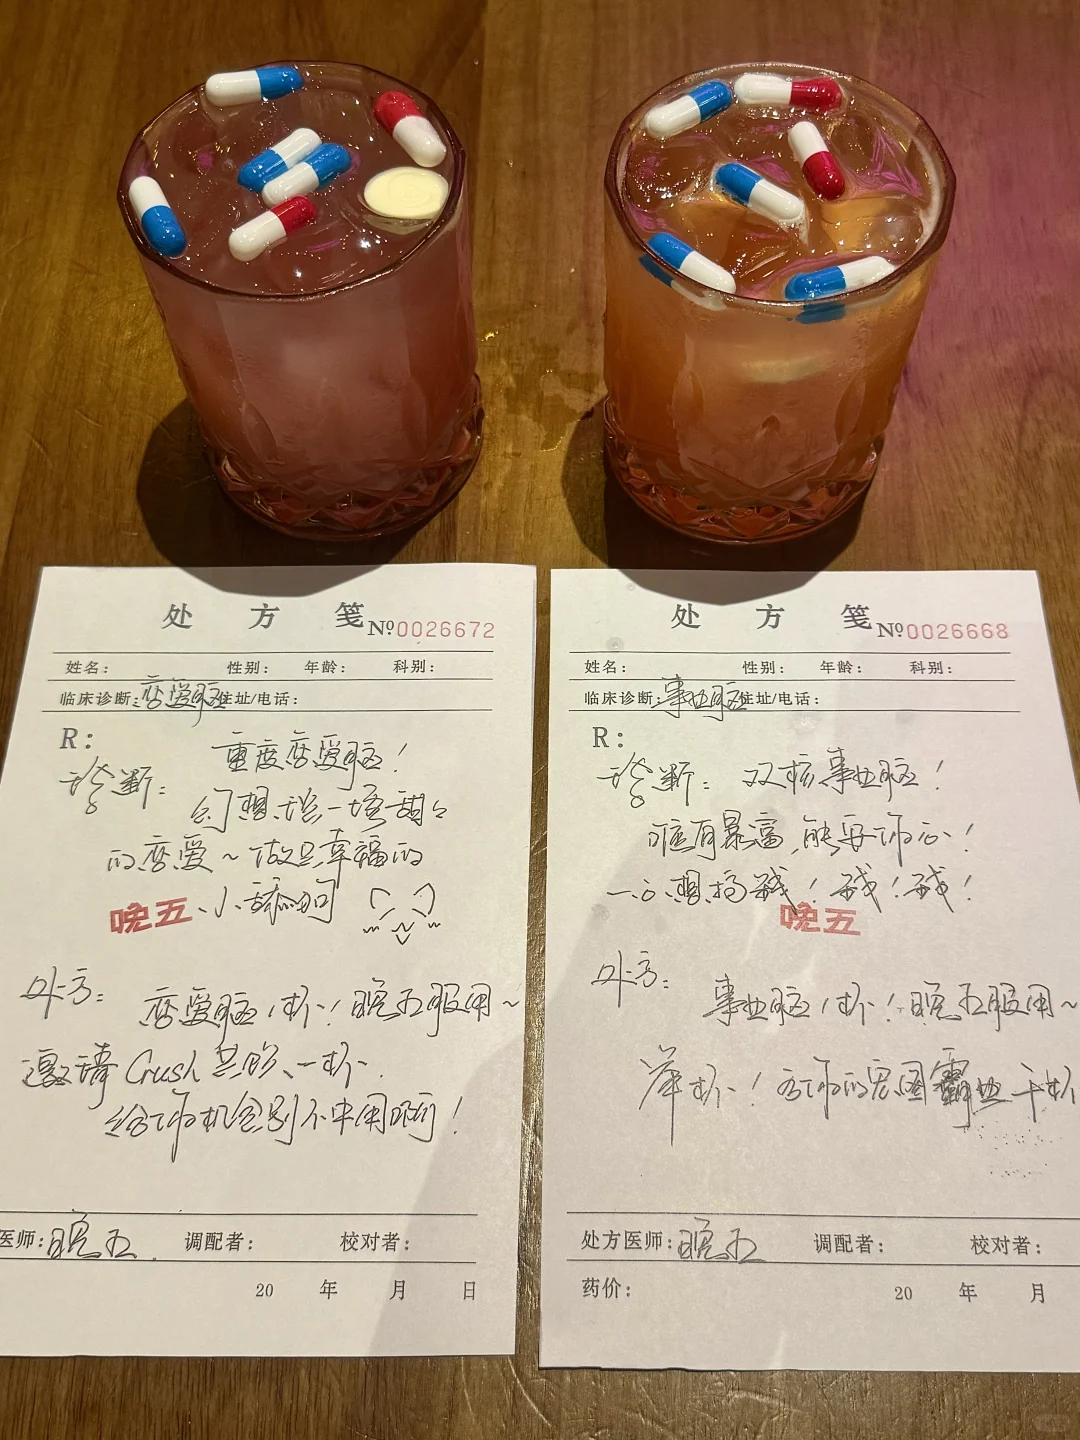 处 方 笺
№0026672
姓名: 性别: 年龄: 科别:
临床诊断:恋爱脑 住址/电话:
R:
诊断: 重度恋爱脑!
幻想谈一场甜甜
的恋爱~做只幸福的
小舔狗
晚五
处方: 恋爱脑1杯!晚五服用~
邀请Crush共饮一杯.
给你机会别不中用啊!
医师:晚五 调配者: 校对者:
20 年 月 日
处 方 笺
№0026668
姓名: 性别: 年龄: 科别:
临床诊断:事业脑 住址/电话:
R:
诊断: 双核事业脑!
唯有暴富,能安你心!
一心想搞钱!钱!钱!
晚五
处方: 事业脑1杯!晚五服用~
举杯!为你的宏图霸业干杯
处方医师:晚五 调配者: 校对者:
药价: 20 年 月